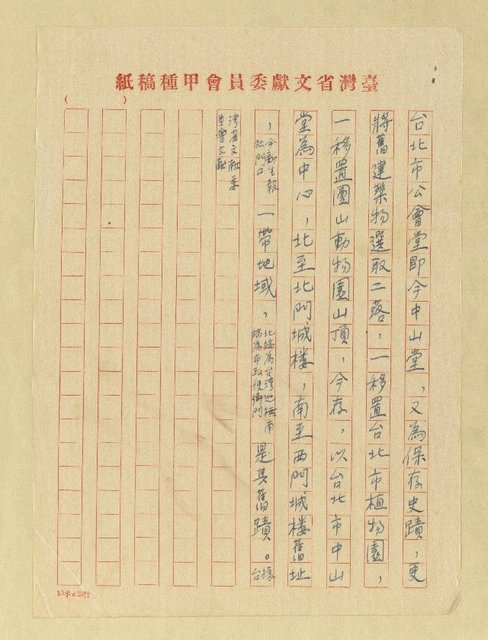 臺灣省文獻委員會甲種稿紙
台北市公會堂即今中山堂，又為保存史蹟，更
將舊建築物選取二落，一移置台北市植物園，
一移置圓山動物園山頂，今存，以台北市中山
堂為中心，北至北門城樓，南至西門城樓舊址
，今新生報
社門口
一帶地域，
北端為台灣巡撫南
端為布政使衙門
是其舊蹟。
台採
灣省文獻委
員會文獻
10行×20格